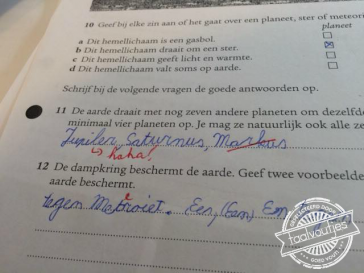 10 Geef bij elke zin aan of het gaat over een planeet, ster of meteor
planeet
a Dit hemellichaam is een gasbol.
b Dit hemellichaam draait om een ster.
c Dit hemellichaam geeft licht en warmte.
d Dit hemellichaam valt soms op aarde.
Schrijf bij de volgende vragen de goede antwoorden op.
11 De aarde draait met nog zeven andere planeten om dezelfde
minimaal vier planeten op. Je mag ze natuurlijk ook alle ze
Jupiler, Saturnus,
haha!
12 De dampkring beschermt de aarde. Geef twee voorbeelde
aarde beschermt.
tegen
taalvoutjes